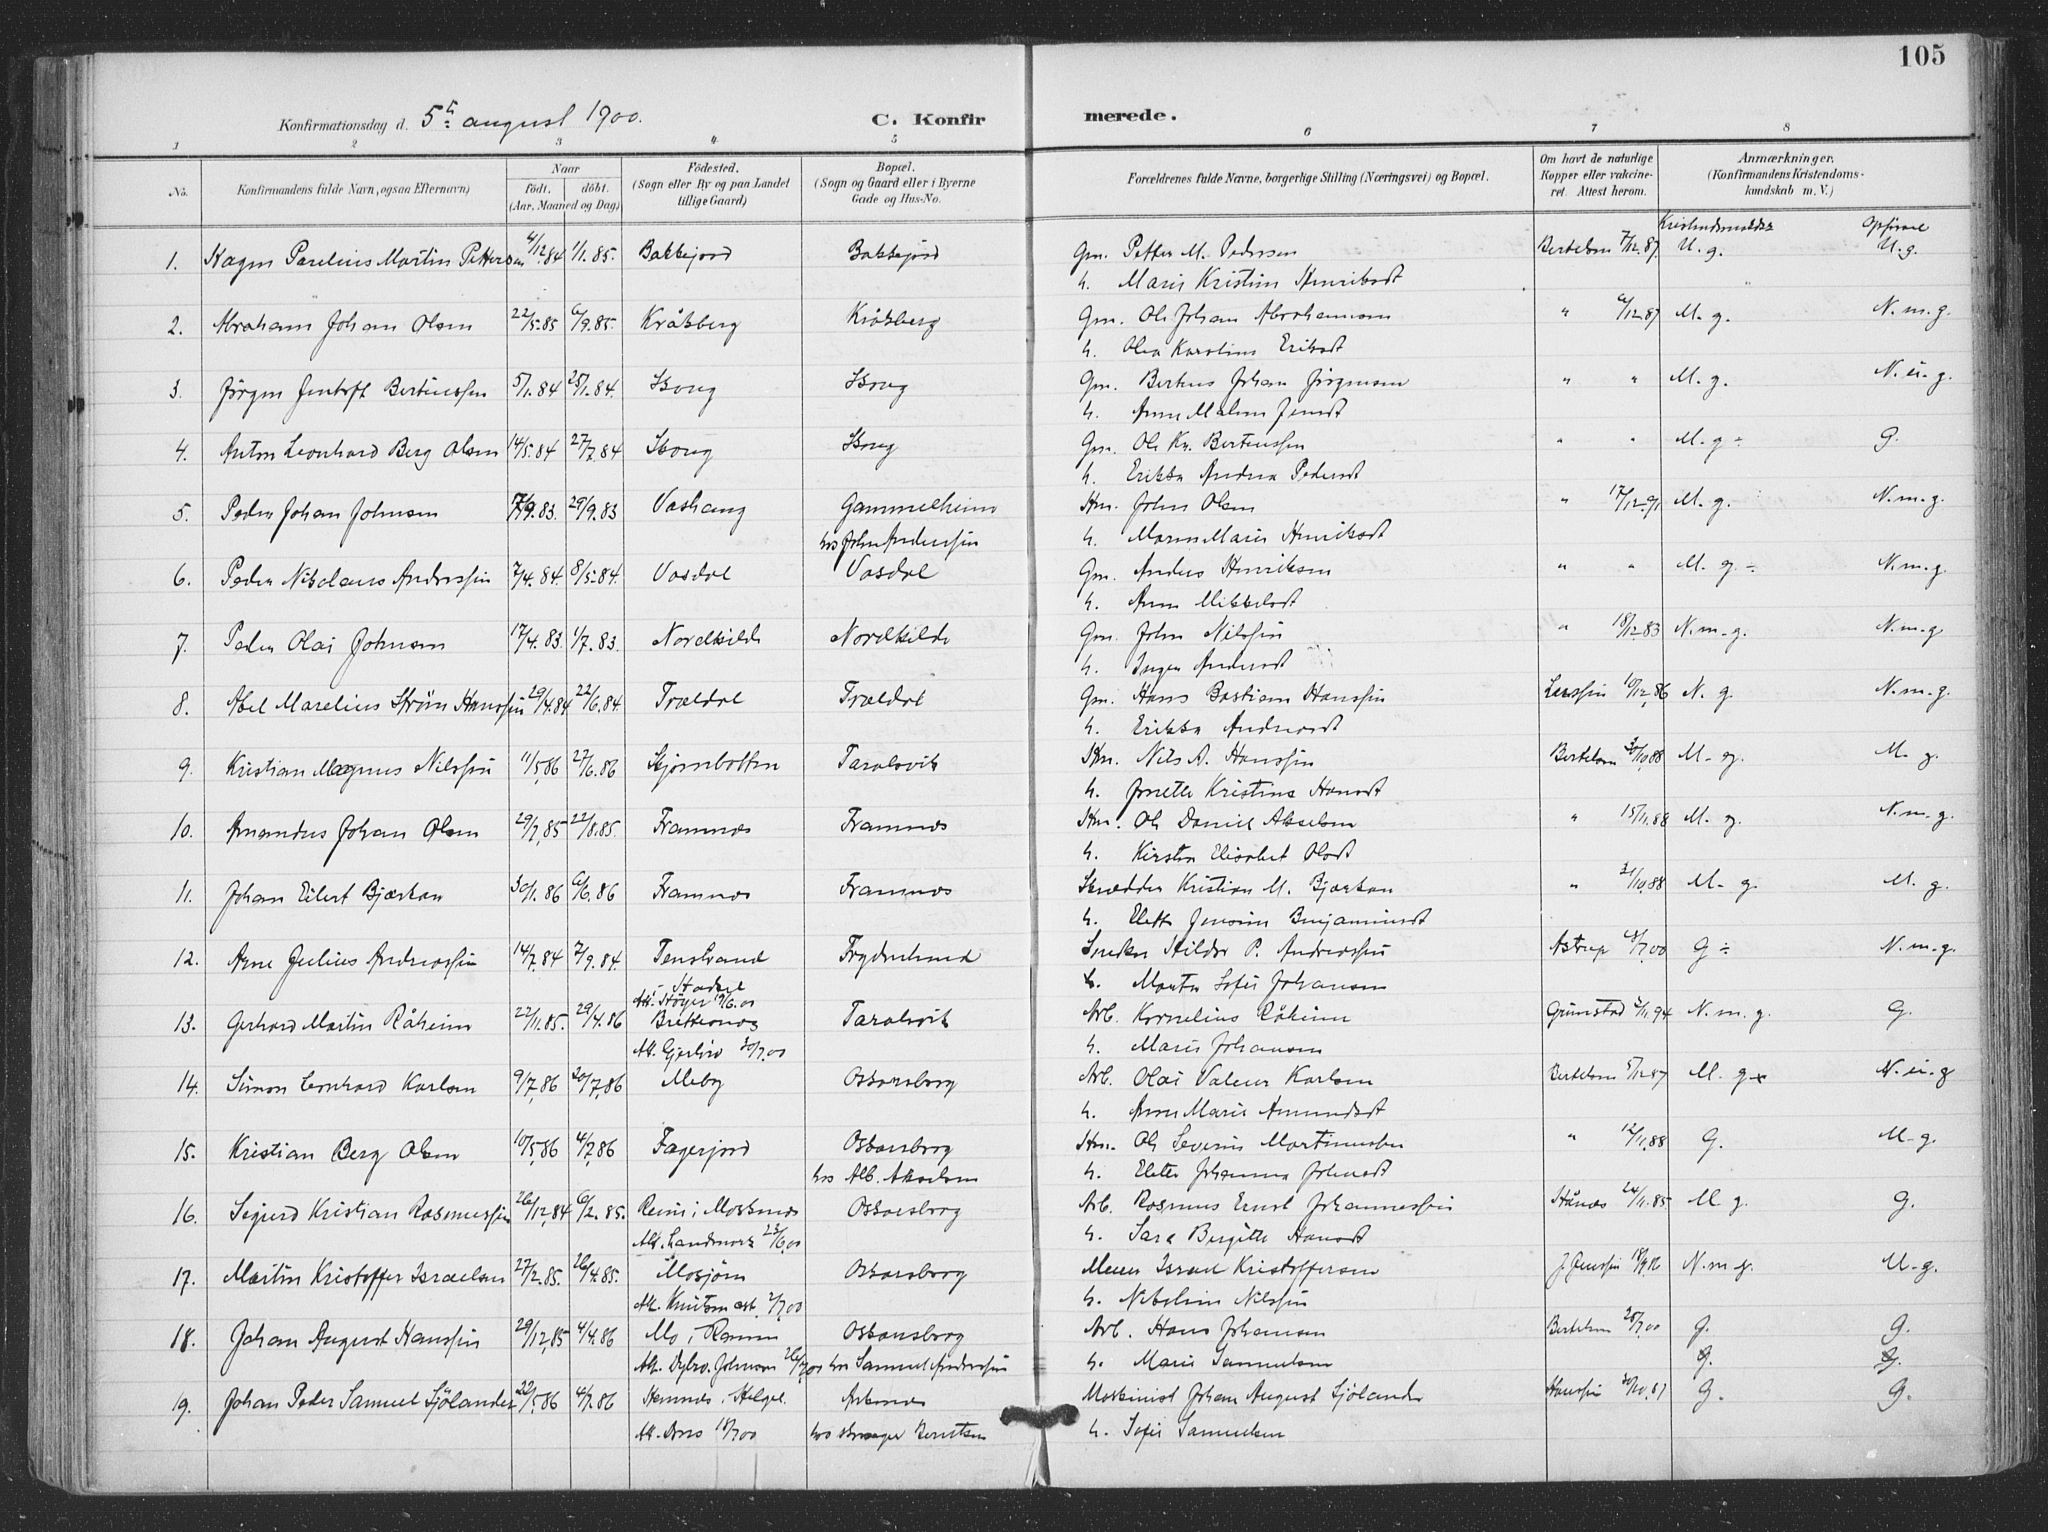 105
Konfirmationsdag d. 5te august 1900. C. Konfirmerede.
1 2 3 4 5 6 7 8
No. Konfirmandens fulde Navn, ogsaa Efternavn) Naar født. døbt. (Aar, Maaned og Dag) Födested. (Sogn eller By og paa Landet tillige Gaard) Bopæl. (Sogn og Gaard eller i Byerne Gade og Hus-No. Forældrenes fulde Navne, borgerlige Stilling (Næringsvei) og Bopæl. Om havt de naturlige Kopper eller vakcineret. Attest herom. Anmærkninger. (Konfirmandens Kristendomskundskab m. V.)
Opførsel
1. Hagen Parelius Martin Pettersen 4/12.84 1/1.85. Bakkejord Bakkejord Gm. Petter M. Pedersen Bertelsen 7/12.87 M. g. M. g.
h. Marie Kristine Henriksdt
2. Abraham Johan Olsen 22/5.85 6/9.85. Kråkberg Kråkberg Gm. Ole Johan Abrahamsen " 6/12.87 M. g. N. m. g.
h. Olea Karoline Eriksdt
3. Jörgen Jentoft Bertinssen 5/1.84 25/1.84. Skoug Skoug Gm. Bertus Johan Jörgensen " " M. g. N. m. g.
h. Anne Malene Jensdt
4. Anton Leonhard Berg Olsen 14/5.84 27/7.84 Skoug Skoug Gm. Ole Kr. Bertinssen " " M. g ÷ G.
h. Erikka Andrea Pedersdt
5. Peder Johan Johnsen 17/9.83. 29/9.83 Vashaug Gammelheim Hm. John Olsen " 17/12.91 M. g. N. m. g.
hos John Anderssen h. Maren Marie Henriksdt
6. Peder Nikolaus Anderssen 7/4.84. 8/5.84. Vasdal Vasdal Gm. Anders Henriksen " " M. g. ÷ N. m. g.
h. Anne Mikkelsdt
7. Peder Olai Johnsen 17/4.83. 1/7.83. Nordkilde Nordkilde Gm. John Nilssen " 18/12.83 N. m. g. N. m. g
h. Inger Andersdt
8. Abel Marelius Strøm Hanssen 29/4.84 22/6.84. Trældal Trældal Gm. Hans Bastian Hanssen Larssen 10/12.86 N. g. N. m. g.
h. Erikka Andreasdt
9. Kristian Magnus Nilssen 11/5.86 27/6.86 Skjombotten Taraldsvik Hm. Nils A. Hanssen Bertelsen 30/10.88 M. g. M. g.
h. Jonette Kristine Hansdt
10. Amandus Johan Olsen 29/7.85 22/8.85. Framnes Framnes Hm. Ole Daniel Akselsen " 15/11.88 M. g. N. m. g.
h. Kirsten Elisabet Olsdt
11. Johan Eilert Bjørkan 30/1.86 6/6.86 Framnes Framnes Skrædder Kristian M. Bjørkan " 31/10.88 M. g. M. g.
h. Elette Jensine Benjaminsdt
12. Arne Julius Andreassen 14/7.84 7/9.84. Tenstrand Frydenlund Snekker Hildor P. Andreassen Astrup 6/7.00 G ÷ N. m. g.
h. Marta Sofie Johansen
13. Gerhard Martin Råheim 22/11.85. 29/4.86 Bretteines Taraldsvik Arb. Kornelius Råheim Grimstad 2/11.94 N. m. g. G.
h. Marie Johansen
14. Simon Leonhard Karlsen 9/7.86 20/7.86 Meby Oskarsborg Arb. Olai Valeur Karlsen Bertelsen 5/12.87 M. g. N. m. g
h. Anne Marie Amundsdt
15. Kristian Berg Olsen 10/5.86 4/7.86 Fagerjord Oskarsborg Hm. Ole Severin Martinussen " 12/11.88 G. M. g.
hos Alb. Akselsen h. Elette Johanna Johnsdt
16. Sigurd Kristian Rasmussen 26/12.84 6/2.85. Oskarsborg Arb. Rasmus Ernst Johannessen 24/11.85 M. g. G.
Att. Landmark 23/6.00 h. Sara Birgitte Hansdt
17. Martin Kristoffer Israelsen 27/2.85. 26/4.85. Mosjøen Oskarsborg Murer Israel Kristoffersen J. Jenssen N. m. g. M. g.
Att. Knutsen 2/7.00 h. Nikoline Nilssen
18. Johan August Hanssen 29/12.85 4/4.86 Mo i Ranen Oskarsborg Arb. Hans Johansen Bertelsen 25/7.00 G. G.
hos Samuel Anderssen h. Marie Samuelsen G. G.
19. Johan Peder Samuel Sjölander 22/5.86 4/7.86 Hemnes i Helgel. Ankenes Maskinist Johan August Sjölander Hanssen 30/10.87 G. G.
18/7.00 h. Sofie Samuelsen